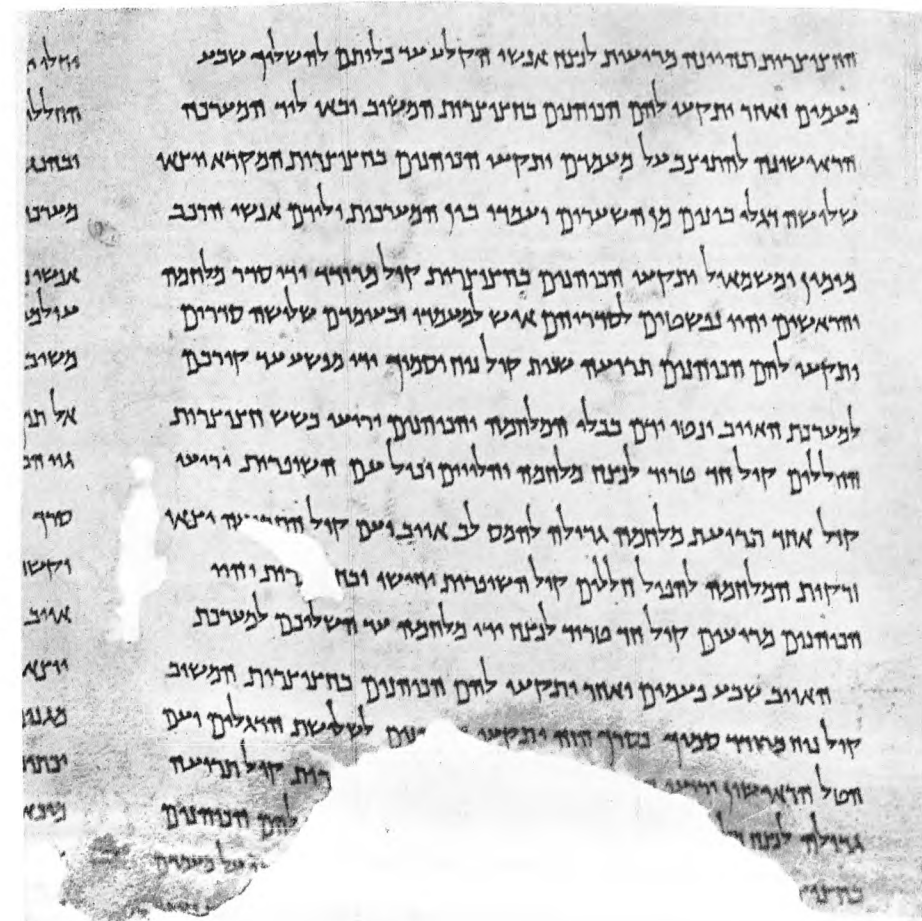 החצוצרות תהיינה מריעות לנצח אנשי הקלע עד כלותם להשליך שבע
פעמים ואחר יתקעו להם הכוהנים בחצוצרות המשוב ובאו ליד המערכה
הראישונה להתיצב על מעמדם ותקעו הכוהנים בחצוצרות המקרא ויצאו
שלושה דגלי בינים מן השערים ועמדו בין המערכות ולידם אנשי הרכב
מימין ומשמאול ותקעו הכוהנים בחצוצרות קול מרודד ידי סדר מלחמה
והראשים יהיו נפשטים לסדריהם איש למעמדו ובעומדם שלושה סדרים
ותקעו להם הכוהנים תרועה שנית קול נוח וסמוך ידי מפשע עד קורבם
למערכת האויב ונטו ידם בכלי המלחמה והכוהנים יריעו בשש חצוצרות
החללים קול חד טרוד לנצח מלחמה והלויים וכול עם השופרות יריעו
קול אחד תרועת מלחמה גדולה להמס לב אויב ועם קול יצאו
זרקות המלחמה להפיל חללים קול השופרות יחישו ובח רות יהיו
הכוהנים מריעים קול חד טרוד לנצח ידי מלחמה עד השליכם למערכת
האויב שבע פעמים ואחר יתקעו להם הכוהנים בחצוצרות המשוב
קול נוח מרודד סמוך כסרך הזה יתקעו לשלושת הדגלים ועם
הטל הראישון יריעו רות קול תרועה
גדולה לנצח להם הכוהנים
על מעמדם
סרך
אויב